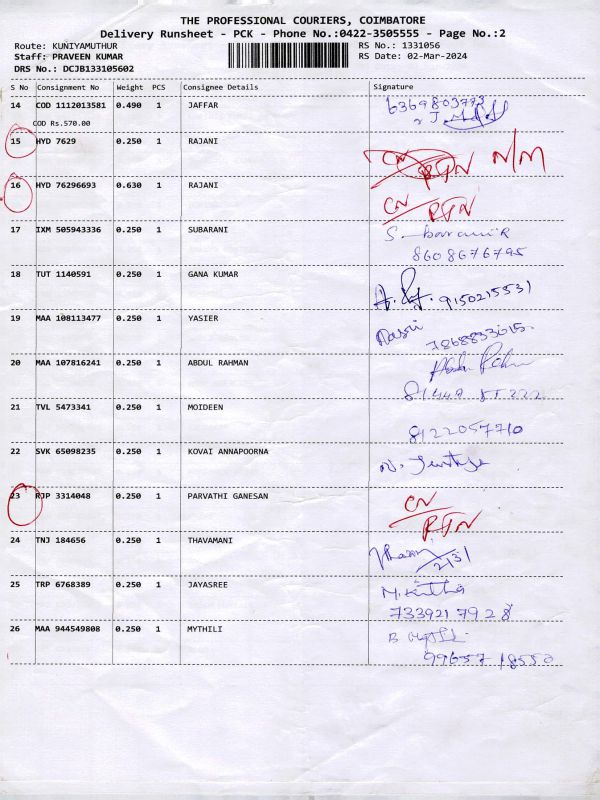 THE PROFESSIONAL COURIERS, COIMBATORE
Delivery Runsheet - PCK - Phone No.:0422-3505555 - Page No.:2
Route: KUNIYAMUTHUR RS No.: 1331056
Staff: PRAVEEN KUMAR RS Date: 02-Mar-2024
DRS No.: DCJB133105602
S No Consignment No Weight PCS Consignee Details Signature
14 COD 1112013581 0.490 1 JAFFAR 6369803773
COD Rs.570.00
15 HYD 7629 0.250 1 RAJANI CN RTN N/M
16 HYD 76296693 0.630 1 RAJANI CN RTN
17 IXM 505943336 0.250 1 SUBARANI
8608676795
18 TUT 1140591 0.250 1 GANA KUMAR 9150215531
19 MAA 108113477 0.250 1 YASIER Nasri
7868833015.
20 MAA 107816241 0.250 1 ABDUL RAHMAN
21 TVL 5473341 0.250 1 MOIDEEN
8122057710
22 SVK 65098235 0.250 1 KOVAI ANNAPOORNA
23 RJP 3314048 0.250 1 PARVATHI GANESAN CN
RTN
24 TNJ 184656 0.250 1 THAVAMANI 2/3/
25 TRP 6768389 0.250 1 JAYASREE
733921 7928
26 MAA 944549808 0.250 1 MYTHILI
99657 18550